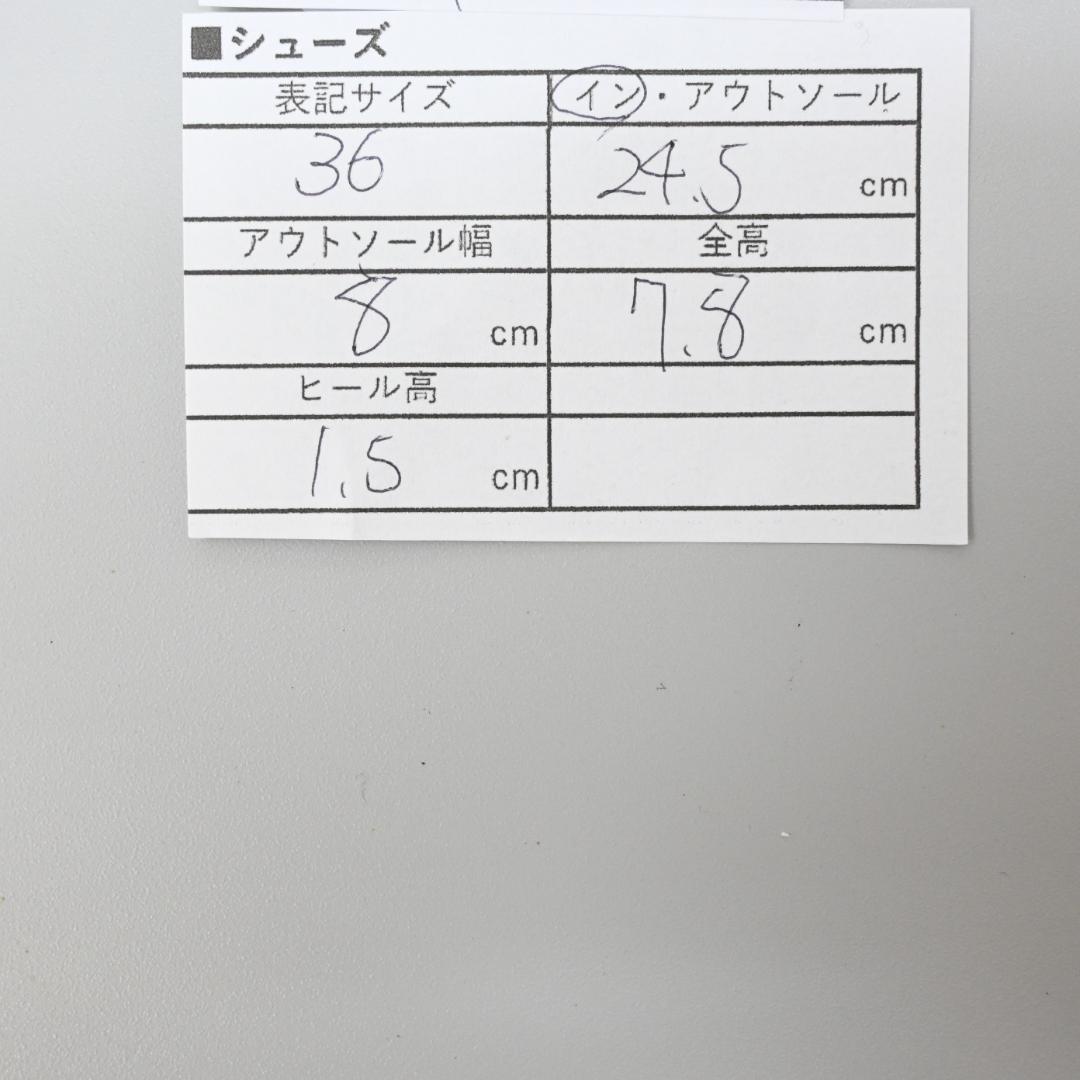 ■シューズ
表記サイズ イン・アウトソール
36 24.5 cm
アウトソール幅 全高
8 cm 7.8 cm
ヒール高
1.5 cm